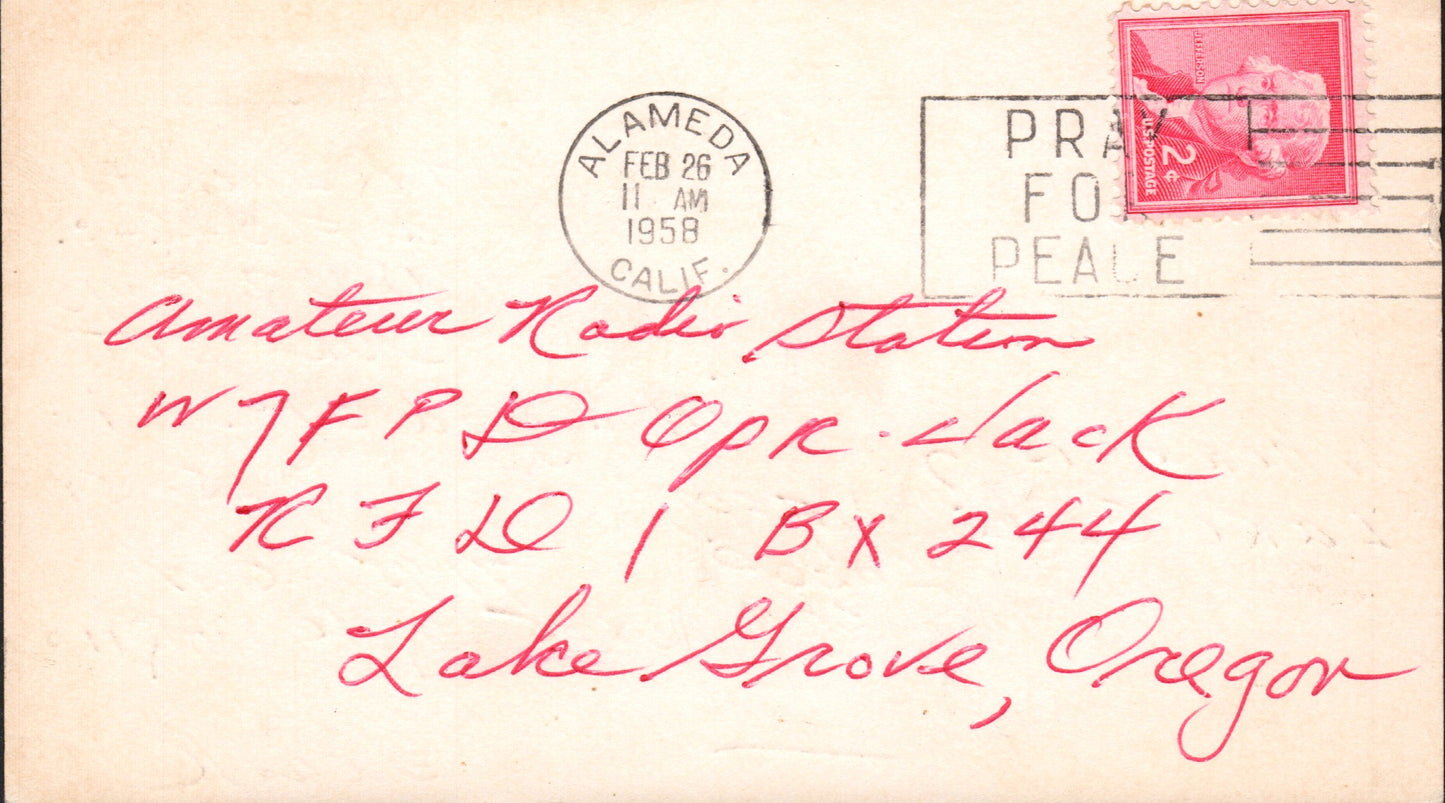 ALAMEDA
FEB 26
11 AM
1958
CALIF.
PRAY
FOR
PEACE
JEFFERSON
U.S. POSTAGE
2¢
Amateur Radio Station
W7FPD Opr. Jack
RFD 1 BX 244
Lake Grove, Oregon